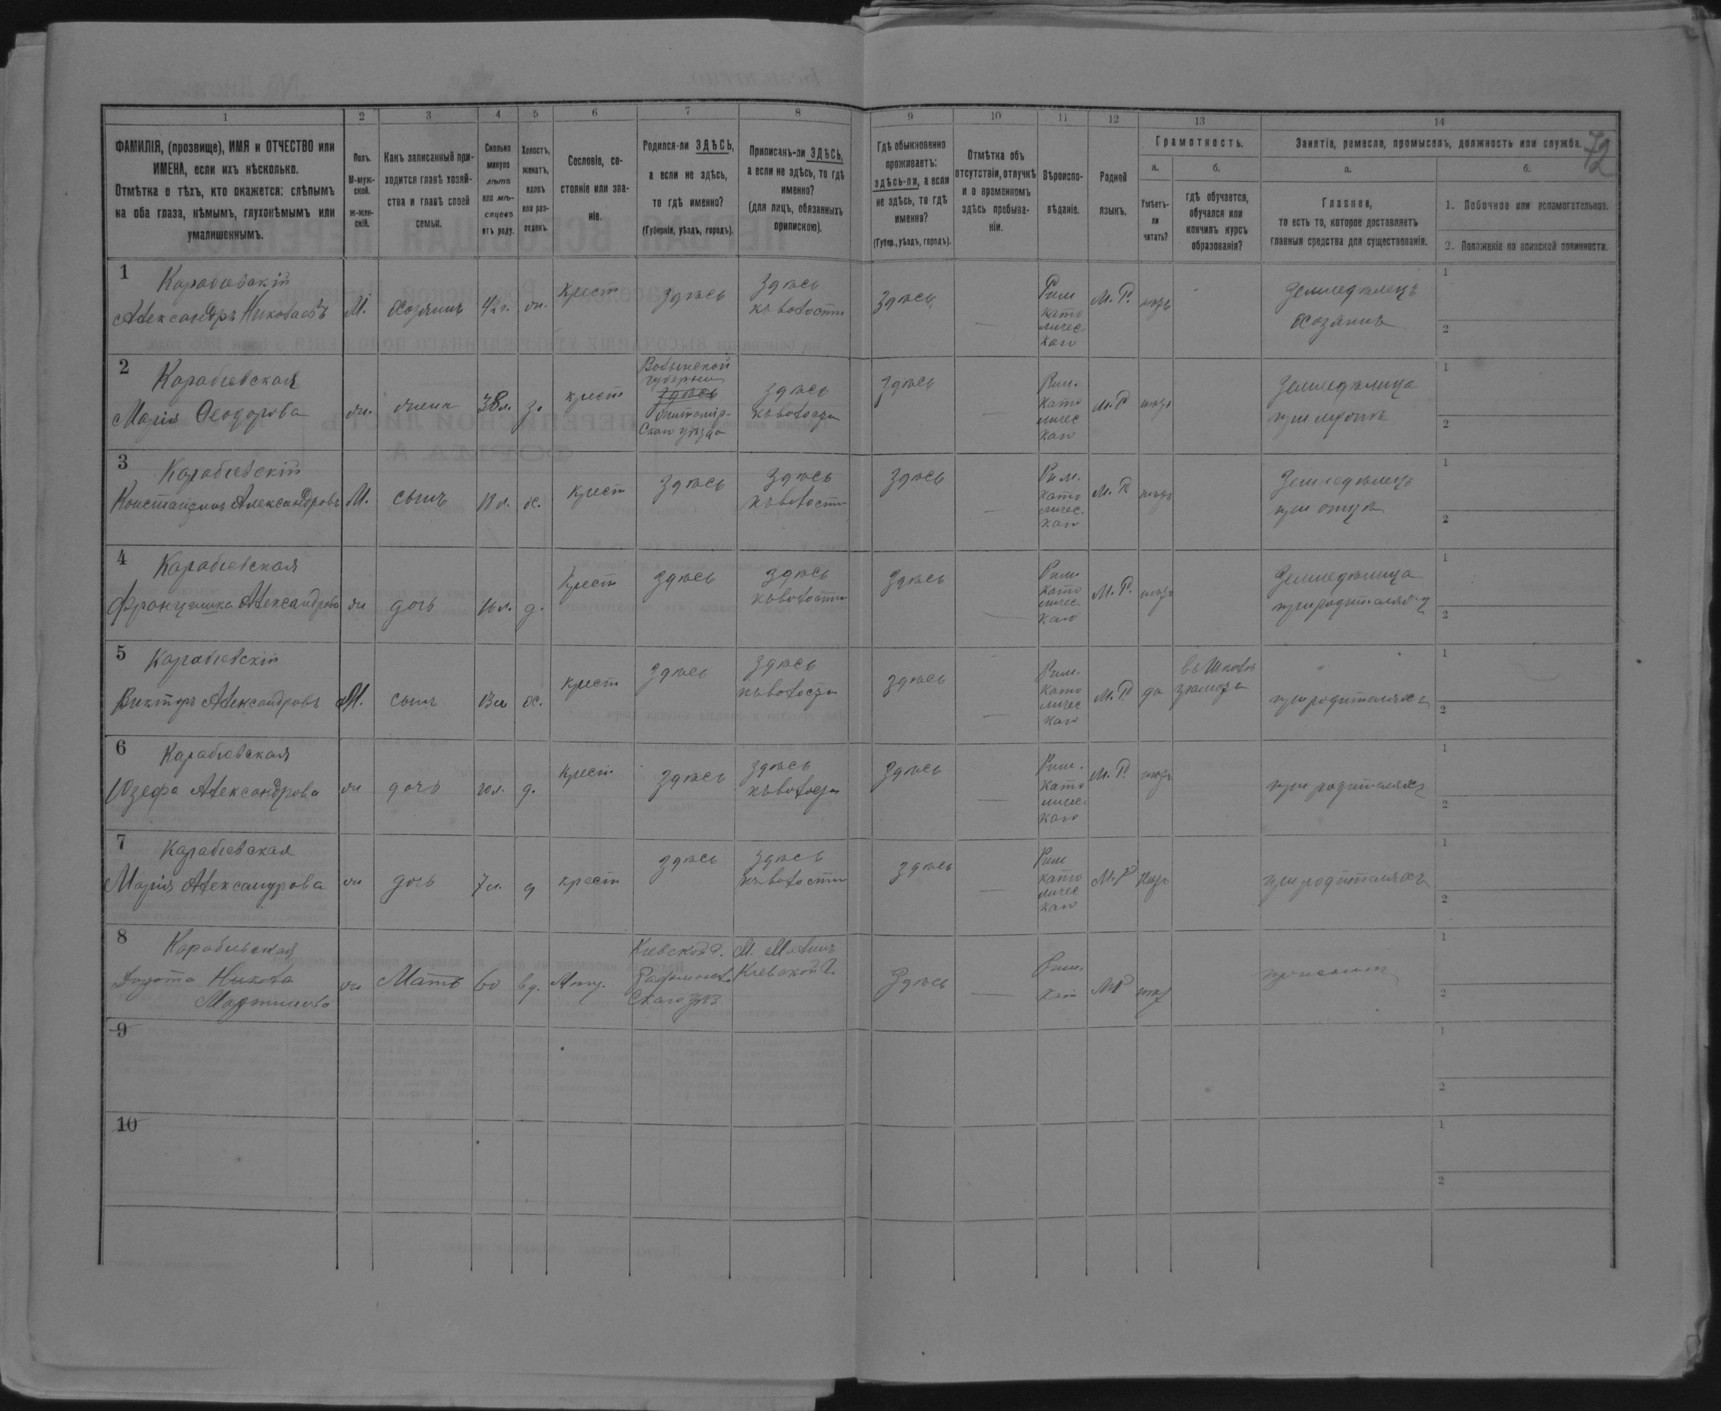 72
1 2 3 4 5 6 7 8 9 10 11 12 13 14
ФАМИЛІЯ, (прозвище), ИМЯ и ОТЧЕСТВО или
ИМЕНА, если ихъ нѣсколько.
Отмѣтка о тѣхъ, кто окажется: слѣпымъ
на оба глаза, нѣмымъ, глухонѣмымъ или
умалишеннымъ.
Полъ.
М-муж-
ской.
Ж-жен-
скій.
Какъ записанный при-
ходится главѣ хозяй-
ства и главѣ своей
семьи.
Сколько
минуло
лѣтъ
или мѣ-
сяцевъ
отъ роду.
Холостъ,
женатъ,
вдовъ
или раз-
веденъ.
Сословіе, со-
стояніе или зва-
ніе.
Родился-ли ЗДѢСЬ,
а если не здѣсь,
то гдѣ именно?
(Губернія, уѣздъ, городъ).
Приписанъ-ли ЗДѢСЬ,
а если не здѣсь, то гдѣ
именно?
(для лицъ, обязанныхъ
припискою).
Гдѣ обыкновенно
проживаетъ:
здѣсь-ли, а если
не здѣсь, то гдѣ
именно?
(Губер., уѣздъ, городъ).
Отмѣтка объ
отсутствіи, отлучкѣ
и о временномъ
здѣсь пребыва-
ніи.
Вѣроиспо-
вѣданіе.
Родной
языкъ.
Грамотность.
а.
Умѣетъ-
ли
читать?
б.
гдѣ обучается,
обучался или
кончилъ курсъ
образованія?
Занятія, ремесло, промыселъ, должность или служба.
а.
Главное,
то есть то, которое доставляетъ
главныя средства для существованія.
б.
1. Побочное или вспомогательное.
2. Положеніе по воинской повинности.
1
Карабіевскій
Александръ Николаевъ М. Хозяинъ 42 г. жн. крест здѣсь
здѣсь
къ волости
здѣсь
Рим
като
личес
каго
М. Р.
Земледѣлецъ
Хозяинъ
1
2
2
Карабіевская
Марія Ѳеодорова жн. жена 38 л. з. крест
Волынской
губерніи
здѣсь
Житомір-
скаго уѣзда
здѣсь
къ волости
здѣсь
Рим.
като
личес
каго
М. Р
Земледѣлица
при мужѣ
1
2
3
Карабіевскій
Константинъ Александровъ М. сынъ х. крест здѣсь
здѣсь
къ волости
здѣсь
Рим.
като
личес
каго
М. Р.
Земледѣлецъ
при отцѣ
1
2
4
Карабіевская
Францишка Александрова жн дочь 16 л. д. крест здѣсь
здѣсь
къ волости
здѣсь
Рим
като
личес
каго
М. Р.
Земледѣлица
при родителяхъ
1
2
5
Карабіевскій
Викторъ Александровъ М. сынъ 13 л х. крест здѣсь
здѣсь
къ волости
здѣсь
Рим.
като
личес
каго
М. Р. да
въ школѣ
при родителяхъ
1
2
6
Карабіевская
Юзефа Александрова жн дочь 10 л. д. крест здѣсь
здѣсь
къ волости
здѣсь
Рим.
като
личес
каго
М. Р.
при родителяхъ
1
2
7
Карабіевская
Марія Александрова жн дочь 7 л. д крест здѣсь
здѣсь
къ волости
здѣсь
Рим
като
личес
каго
М. Р
при родителяхъ
1
2
8
Карабіевская
Мартинова
жн Мать 60 вд.
Кіевской г.
Радомысль
скаго уѣз
М. Малинъ
Кіевской г.
здѣсь
Рим.
кат
М Р
1
2
9
1
2
10
1
2